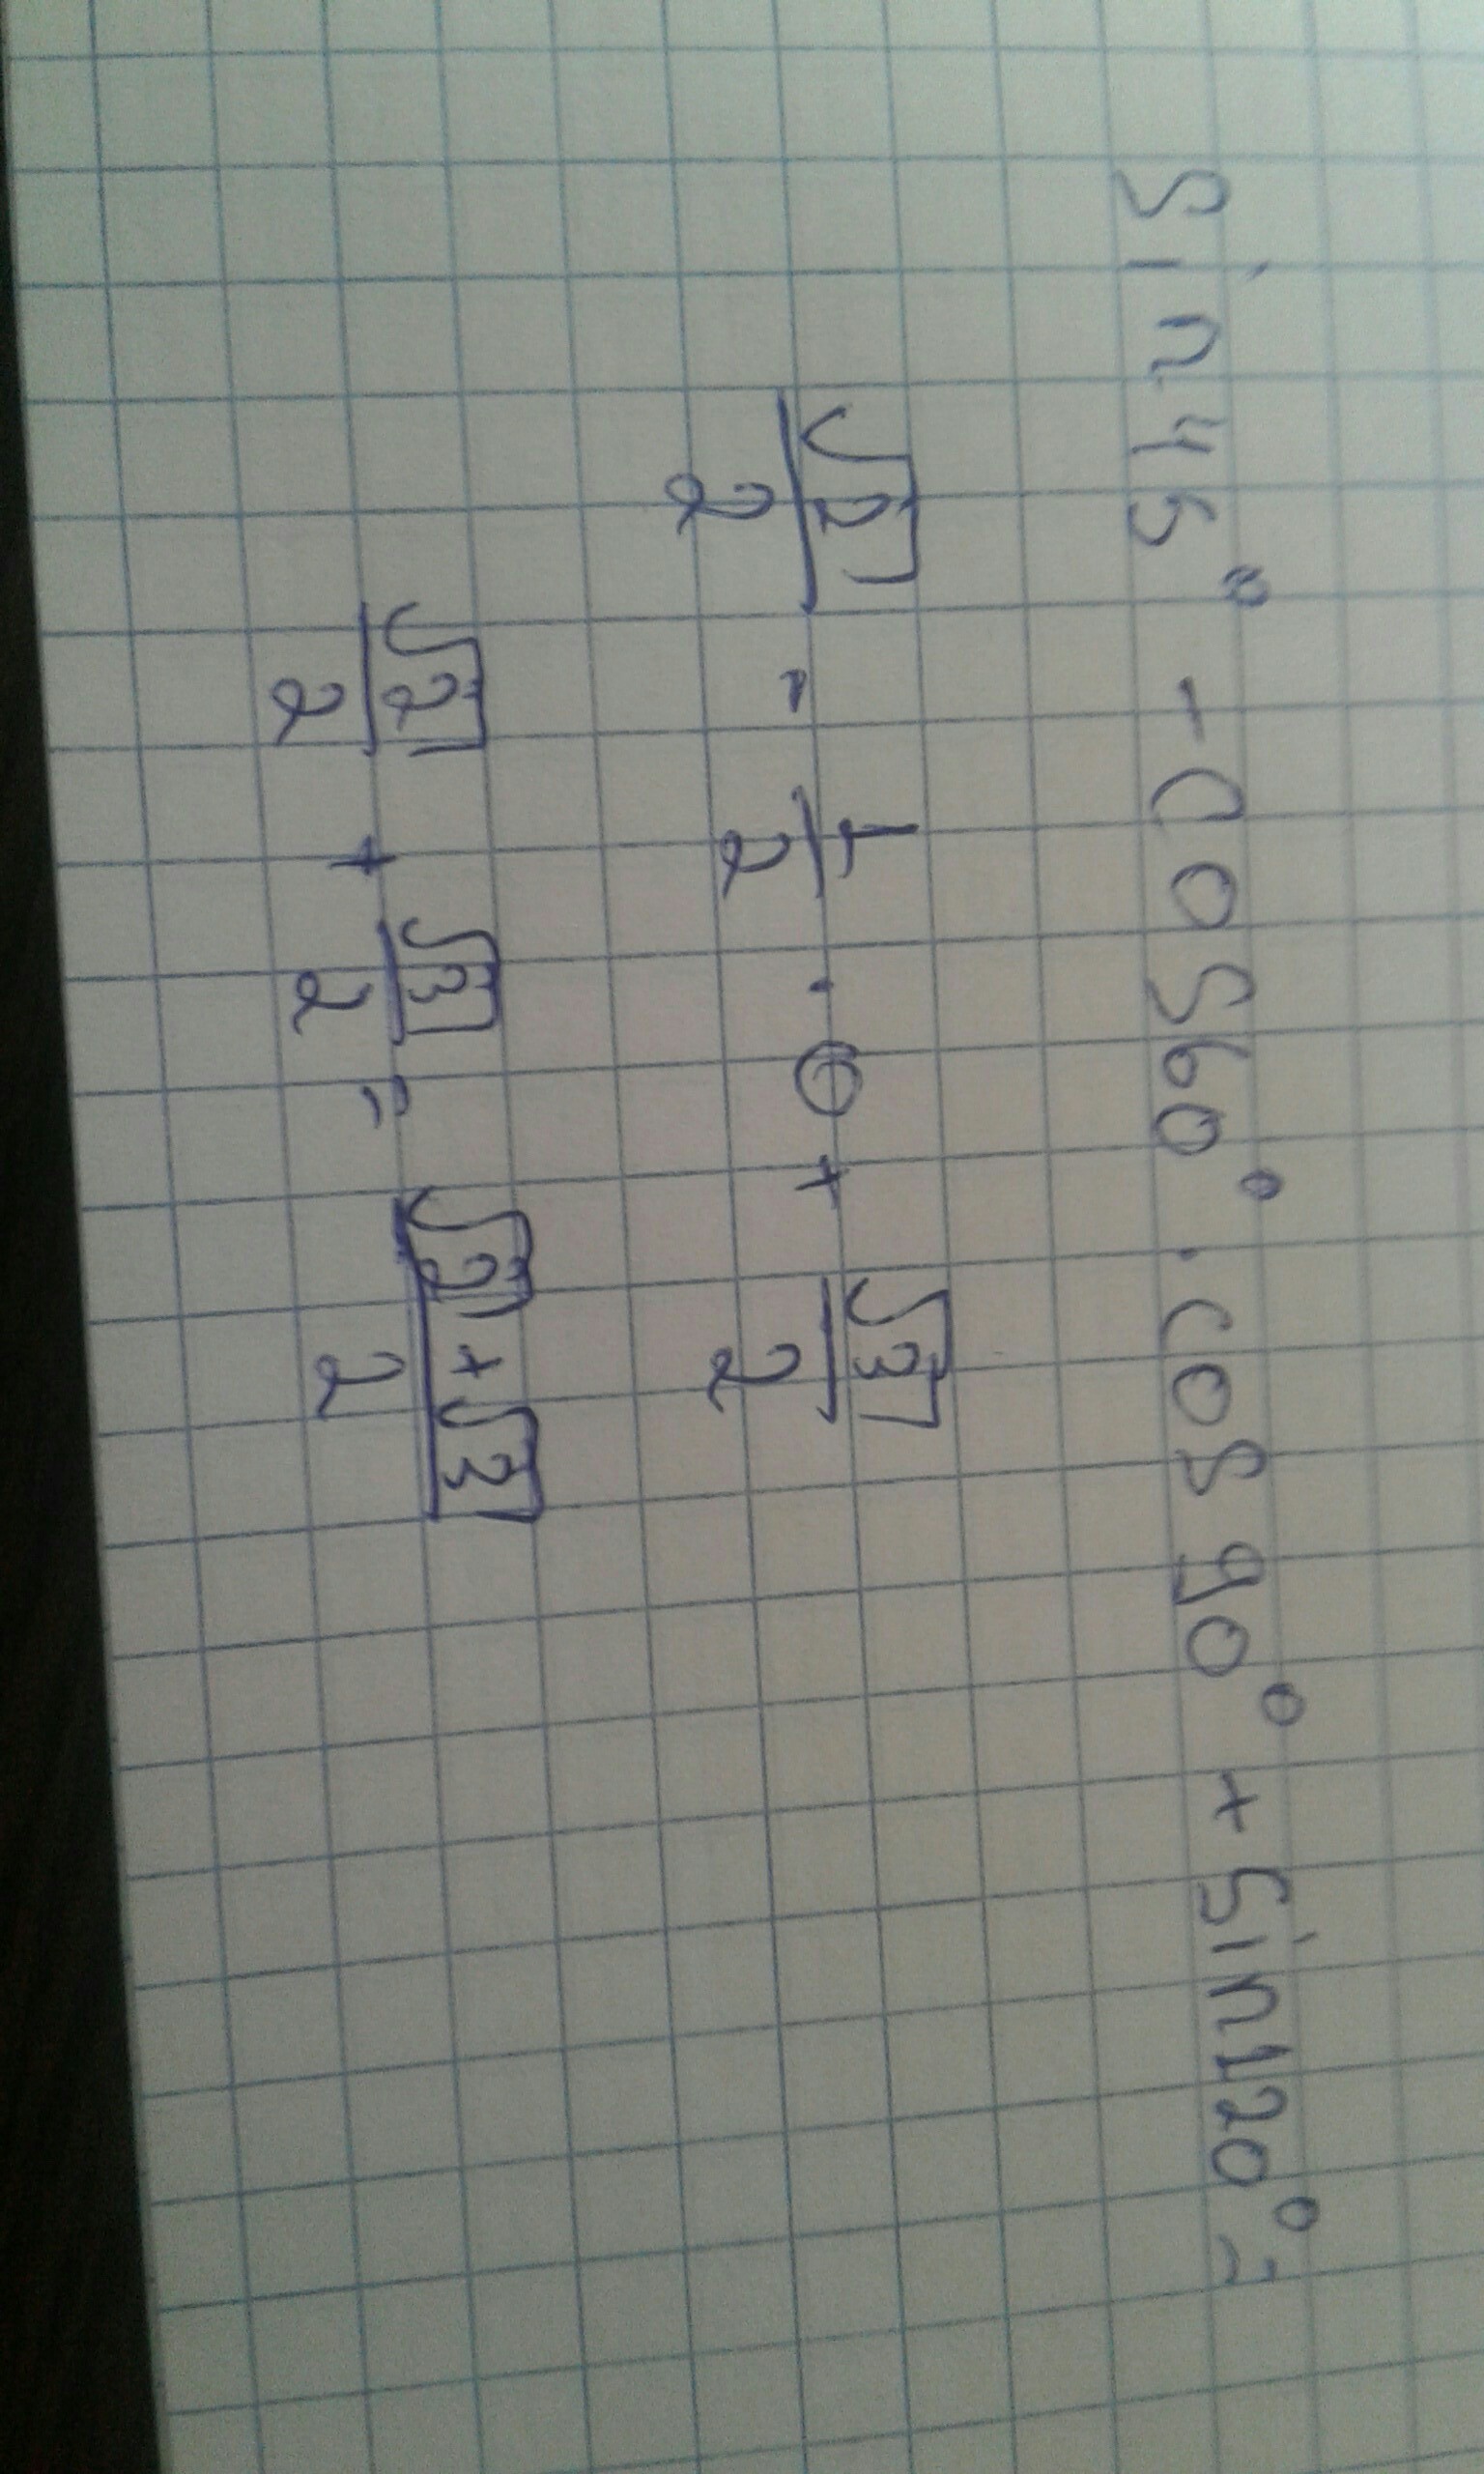 sin45° - cos60° · cos90° + sin120° =
√2/2 - 1/2 · 0 + √3/2
√2/2 + √3/2 = (√2 + √3)/2